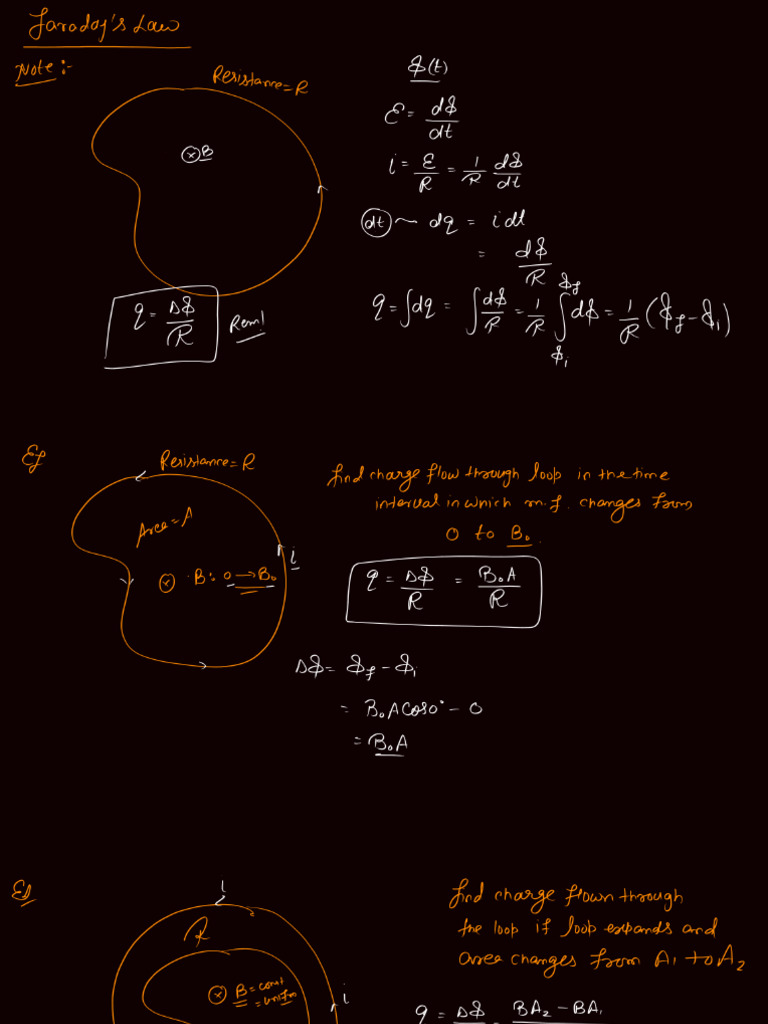 Faraday's Law
Note:-
Resistance = R
ϕ(t)
⊗B
ℰ = dϕ/dt
i = ℰ/R = 1/R dϕ/dt
dt ~ dq = i dt
= dϕ/R
q = ΔΦ/R Rem!
q = ∫dq = ∫dϕ/R = 1/R ∫_{ϕi}^{ϕf} dϕ = 1/R (ϕf - ϕi)
Eg
Resistance = R
Area = A
⊗ B: 0 → B₀
i
find charge flow through loop in the time
interval in which m.f. changes from
0 to B₀.
q = Δϕ/R = B₀A/R
Δϕ = ϕf - ϕi
= B₀A cos0° - 0
= B₀A
Eg
i
R
⊗ B = const
= uniform
i
find charge flown through
the loop if loop expands and
area changes from A₁ to A₂
q = Δϕ BA₂ - BA₁